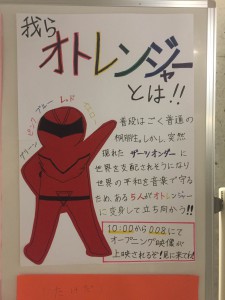 我ら
オトレンジャー
とは!!
グリーン
ピンク
ブルー
レッド
イエロー
普段はごく普通の
桐朋生。しかし、突然
現れた ダーツオンダー に
世界を支配されそうになり
世界の平和を音楽で守る
ため、ある5人がオトレンジャー
に変身して立ち向かう!!
10:00から008にて
オープニング映像が
上映されるぞ!見に来てね!